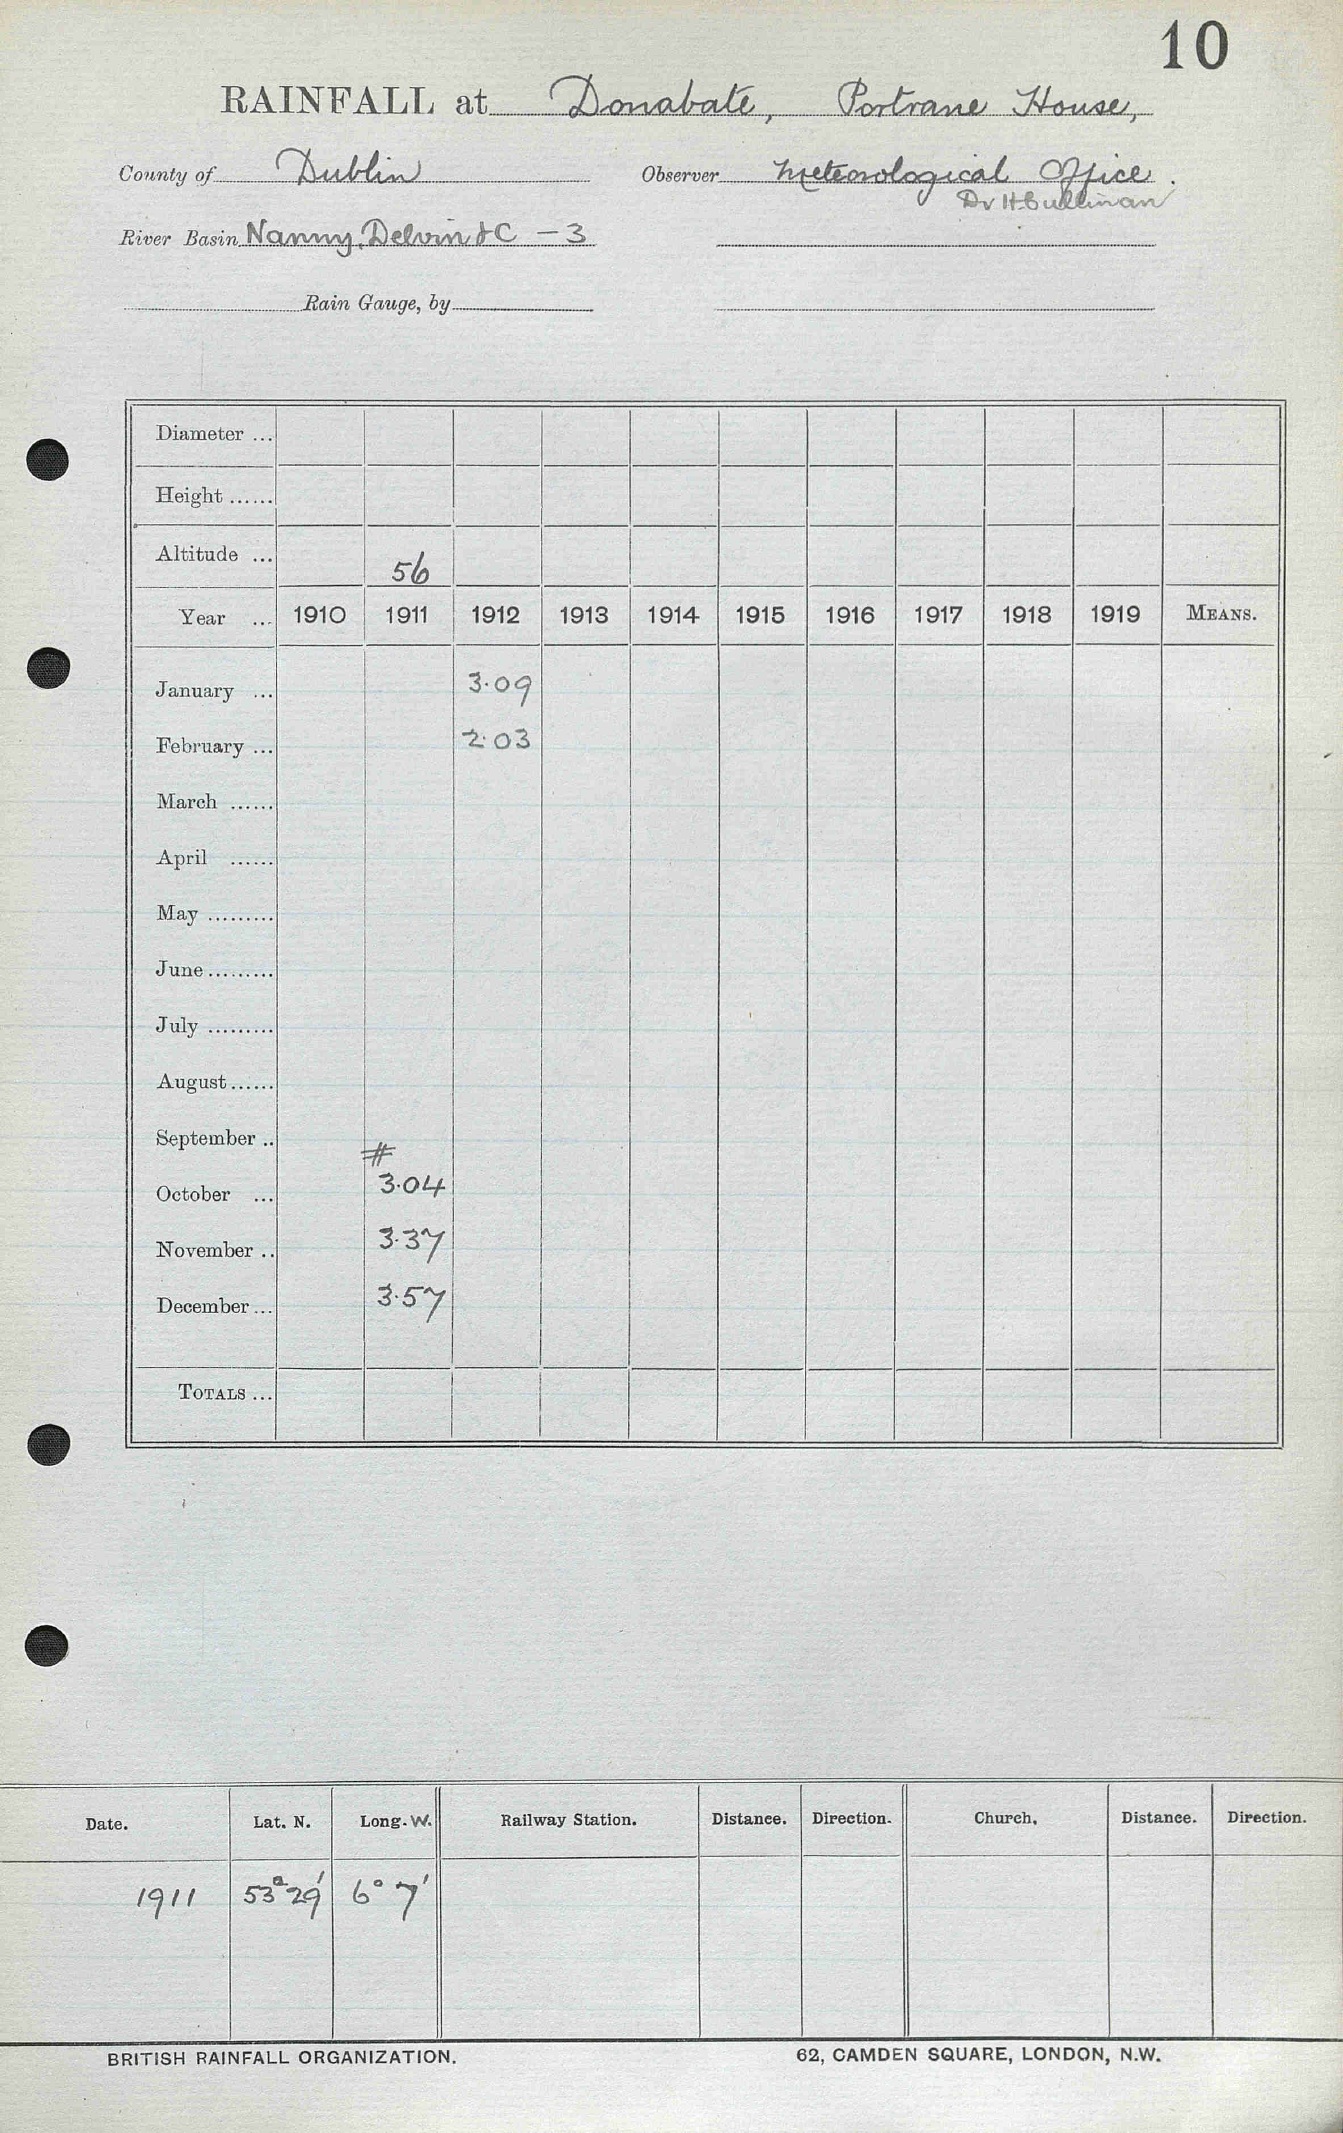 10
RAINFALL at Donabate, Portrane House,
County of Dublin Observer Meteorological Office.
Dr H. Cullinan
River Basin Nanny, Delvin &C - 3
Rain Gauge, by
Diameter ...
Height ......
Altitude ... 56
Year ... 1910 1911 1912 1913 1914 1915 1916 1917 1918 1919 MEANS.
January ... 3.09
February ... 2.03
March ......
April ......
May .........
June .........
July .........
August ......
September ..
#
October ... 3.04
November .. 3.37
December ... 3.57
TOTALS ...
Date. Lat. N. Long. W. Railway Station. Distance. Direction. Church. Distance. Direction.
1911 53° 29' 6° 7'
BRITISH RAINFALL ORGANIZATION. 62, CAMDEN SQUARE, LONDON, N.W.